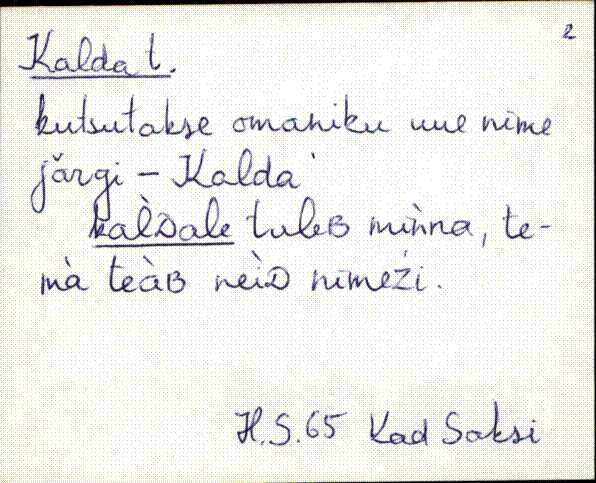 2
Kalda t.
kutsutakse omaniku uue nime
järgi – Kalda
kal̀Dale tuleB mìnna, te-
mà teàB neìD nimeźi.
H.S.65 Kad Saksi